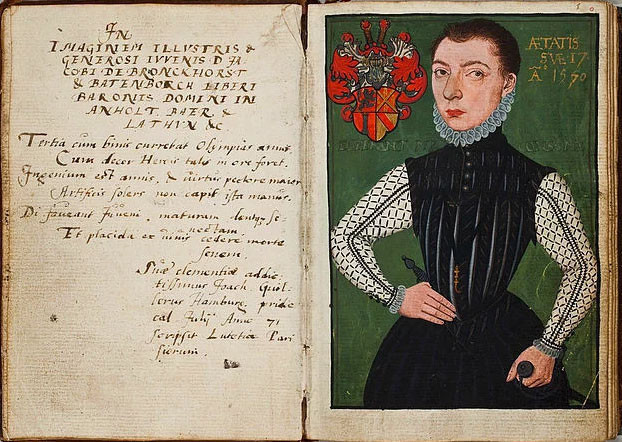 IN
IMAGINEM ILLUSTRIS &
GENEROSI IVVENIS D. JA
COBI DE BRONCKHORST
& BATENBORCH LIBERI
BARONIS DOMINI IN
ANHOLT, BAER, &
LATHVN &c
Tertia cum binis curreret Olympias annis,
Cum decor Herois talis in ore foret.
Ingenium est annis, & virtus pectore maior
Artificis solers non capit ista manus.
Di faveant iuveni, maturam dent
se-
nectam
Et placida ex vivis cedere morte
senem.
Suæ clementiæ addic-
tissimus Joach
Hamburg. pridie
cal Julij Anno 71
scripsit Lutetiæ Pari
siorum.
ÆTATIS
SVÆ 17
Aº 1570